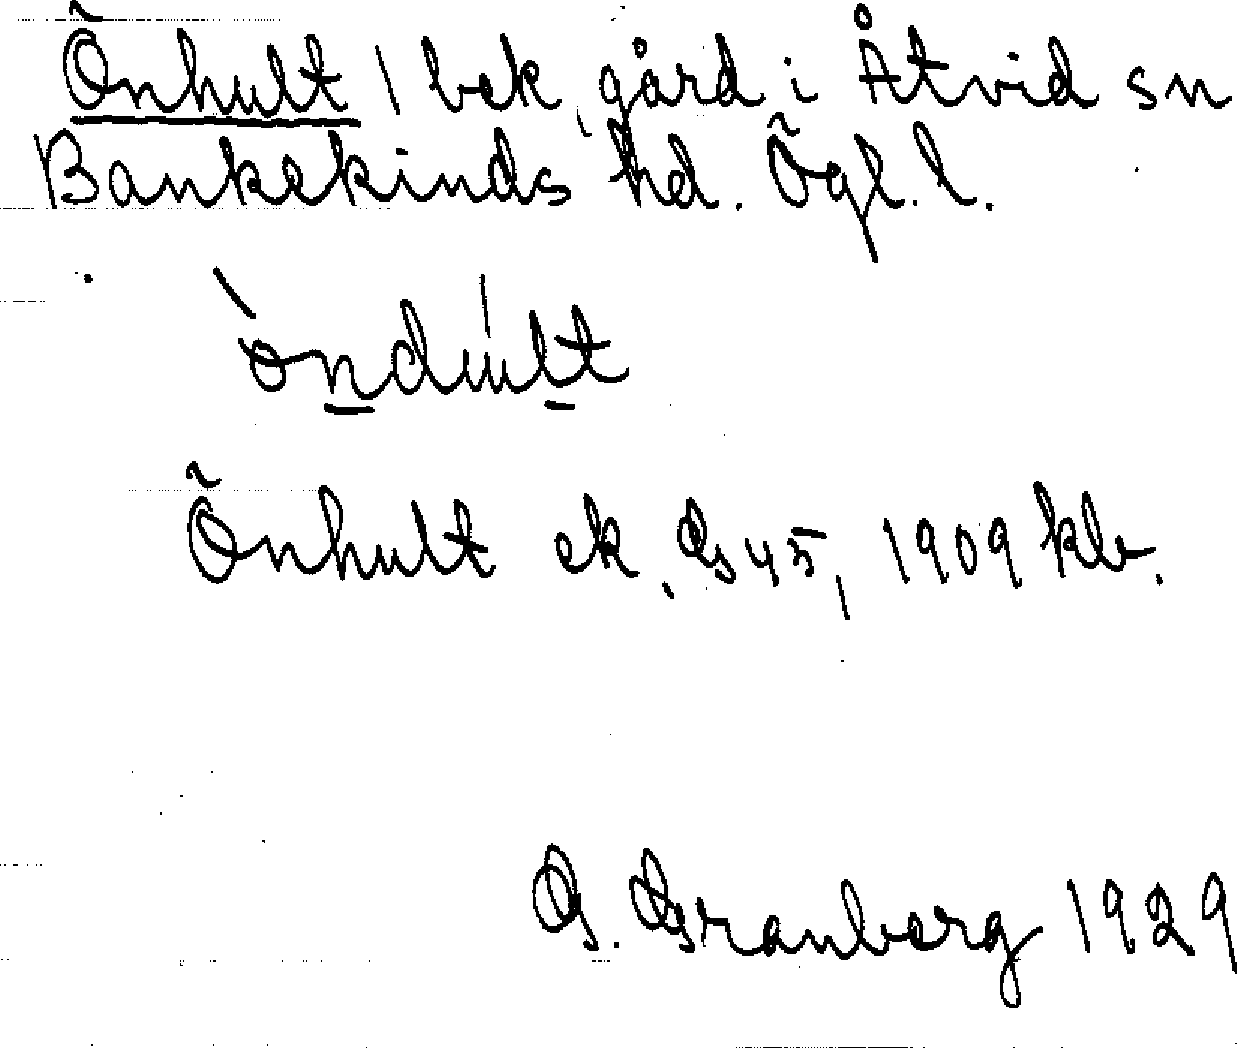 Õnhult 1 bek, gård i Åtvid sn
Bankekinds hd. Õgl. l.
òndúlt
Õnhult ek, GS 45, 1909 klv.
G. Granberg 1929